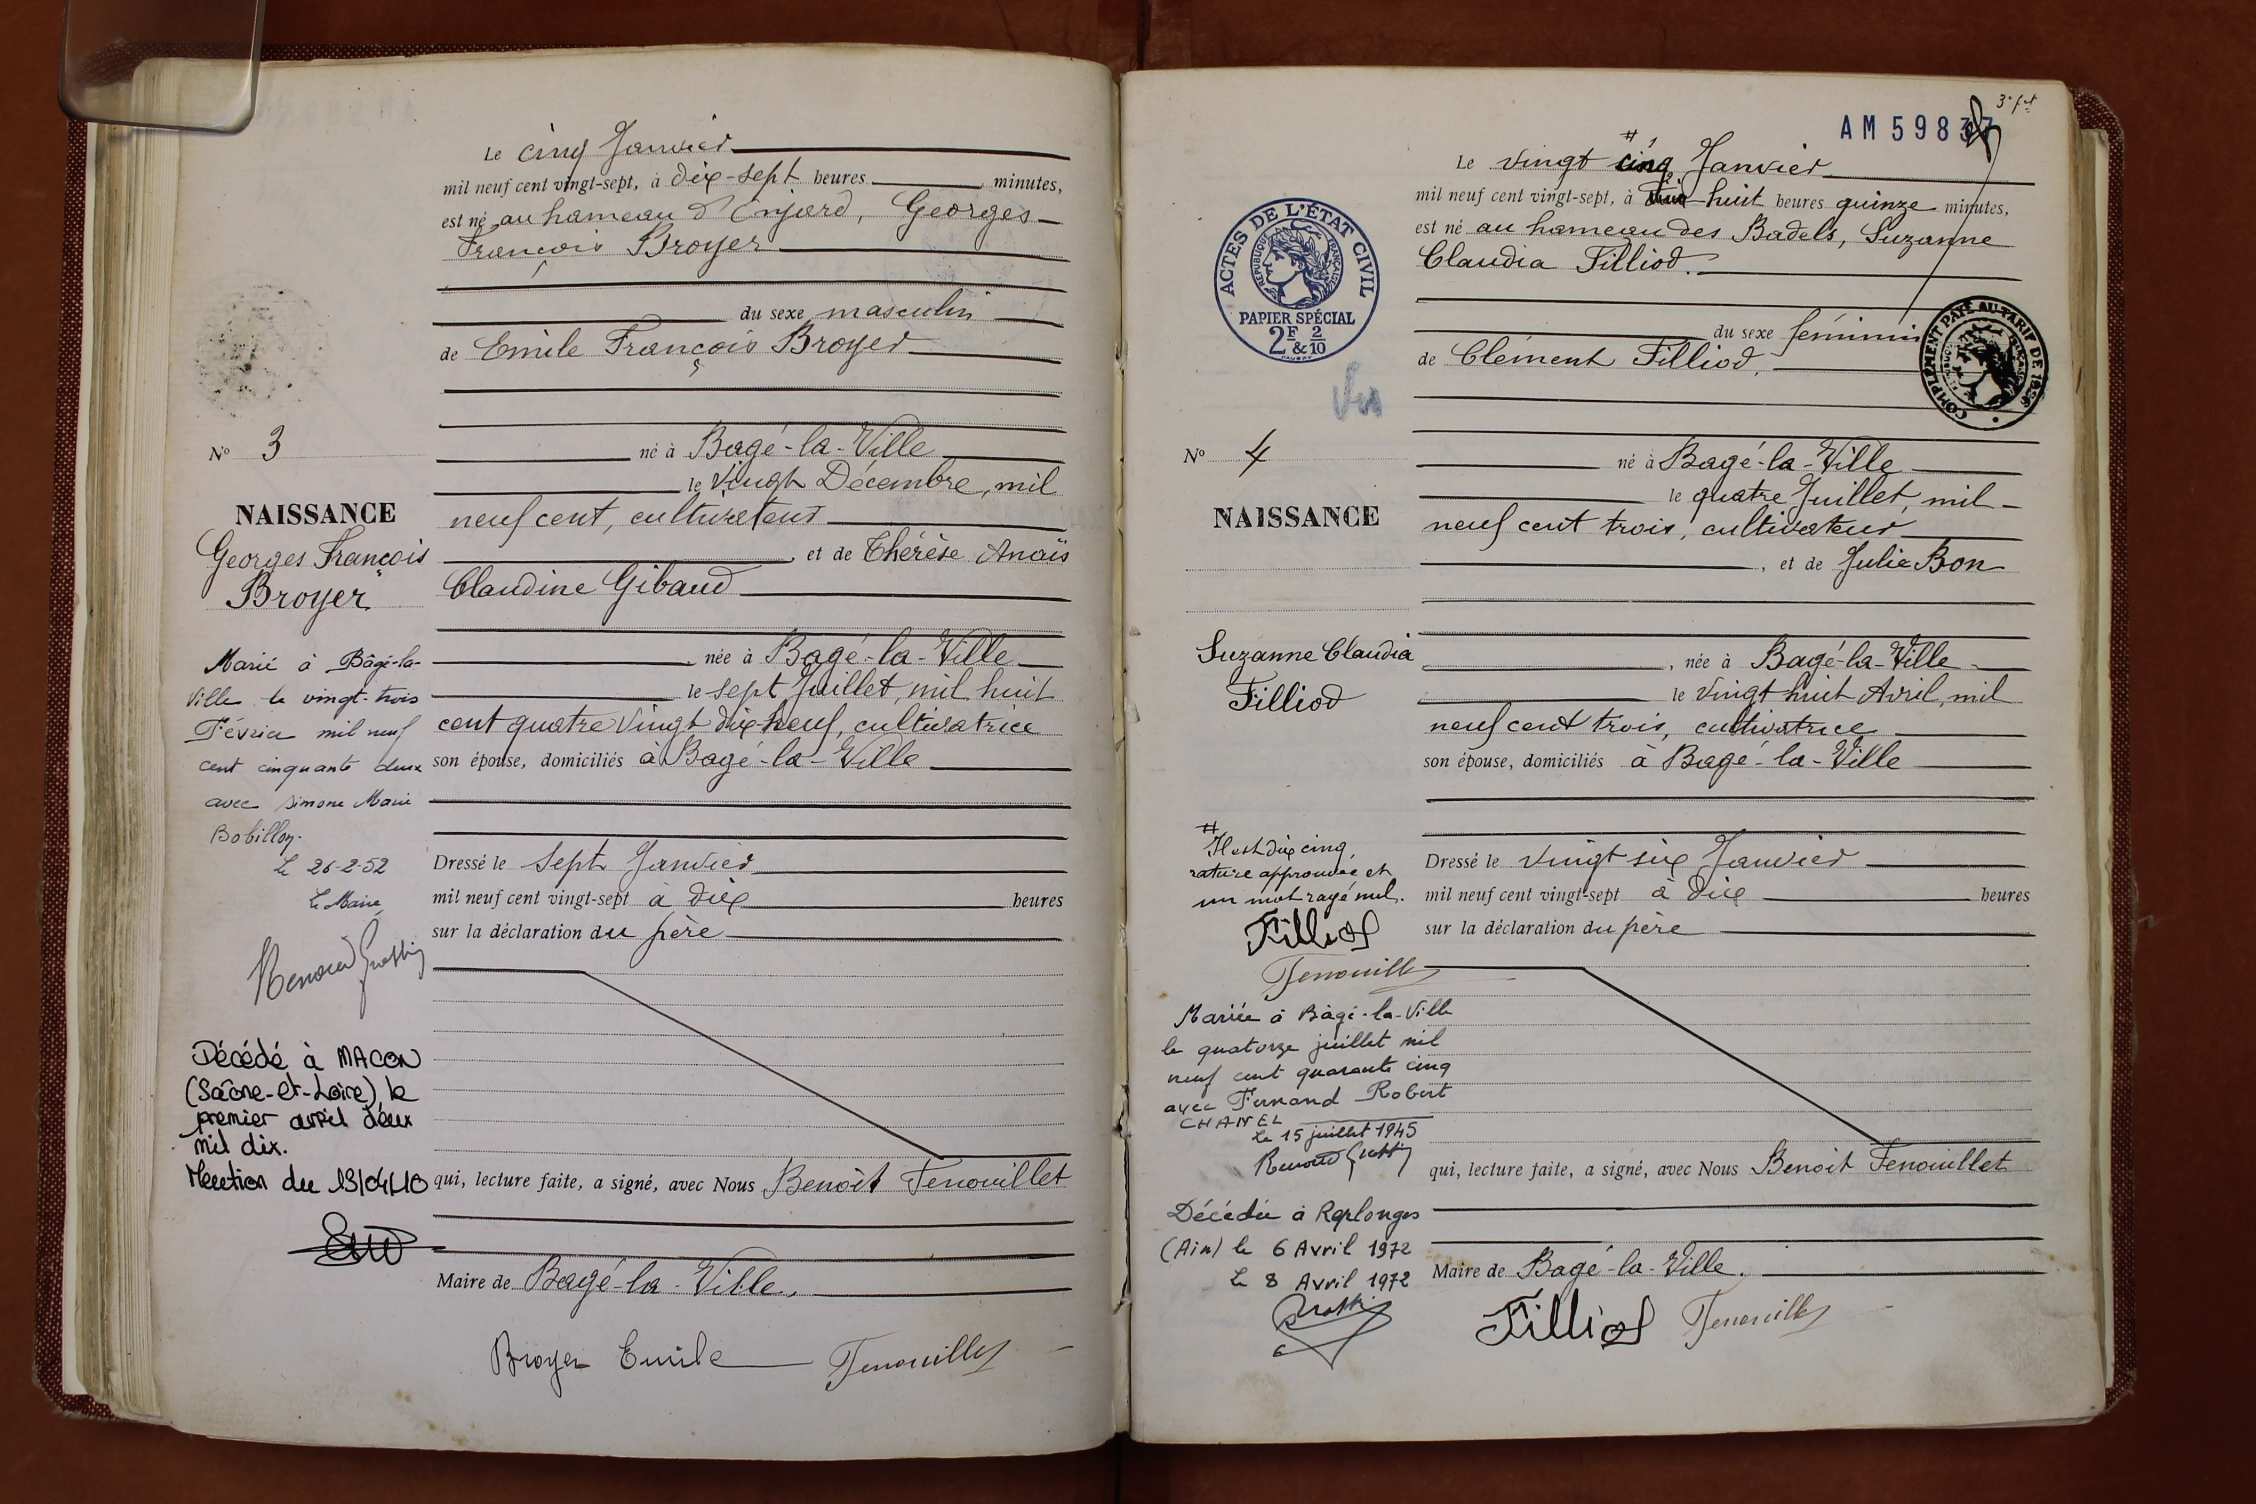 Le cinq Janvier
mil neuf cent vingt-sept, à dix-sept heures minutes,
est né au hameau d'Enjard, Georges
François Broyer
du sexe masculin
de Emile François Broyer
N° 3
né à Bagé-la-Ville
le vingt Décembre, mil
NAISSANCE
neuf cent, cultivateur
Georges François
Broyer
, et de Thérèse Anaïs
Claudine Gibaud
née à Bagé-la-Ville
le sept Juillet, mil huit
cent quatre vingt dix-neuf, cultivatrice
son épouse, domiciliés à Bagé-la-Ville
Marié à Bâgé-la-
Ville le vingt-trois
Février mil neuf
cent cinquante deux
avec Simone Marie
Bobillon.
Le 26-2-52
Le Maire
Dressé le sept Janvier
mil neuf cent vingt-sept à dix heures
sur la déclaration du père
Décédé à MACON
(Saône-et-Loire), le
premier avril deux
mil dix.
Mention du 13/04/10
qui, lecture faite, a signé, avec Nous Benoit Fenouillet
Maire de Bagé-la-Ville.
Broyer Emile Fenouillet
3e fet
AM 5983
Le vingt # cinq Janvier
mil neuf cent vingt-sept, à huit heures quinze minutes,
est né au hameau des Badels, Suzanne
Claudia Filliod.
ACTES DE L'ÉTAT CIVIL
RÉPUBLIQUE FRANÇAISE
PAPIER SPÉCIAL
2F & 2/10
Vu
du sexe féminin
COMPLÉMENT PAYÉ AU TARIF DE 1926
de Clément Filliod.
N° 4
né à Bagé-la-Ville
le quatre Juillet, mil
NAISSANCE
neuf cent trois, cultivateur
, et de Julie Bon
Suzanne Claudia
Filliod
, née à Bagé-la-Ville
le vingt huit Avril, mil
neuf cent trois, cultivatrice
son épouse, domiciliés à Bagé-la-Ville
#
Il est dix cinq,
rature approuvée et
un mot rayé nul.
Filliod
Fenouillet
Dressé le vingt six Janvier
mil neuf cent vingt-sept à dix heures
sur la déclaration du père
Mariée à Bâgé-la-Ville
le quatorze juillet mil
neuf cent quarante cinq
avec Fernand Robert
CHANEL
Le 15 juillet 1945
qui, lecture faite, a signé, avec Nous Benoit Fenouillet
Décédée à Replonges
(Ain) le 6 Avril 1972
Le 8 Avril 1972
Maire de Bagé-la-Ville.
Filliod Fenouillet